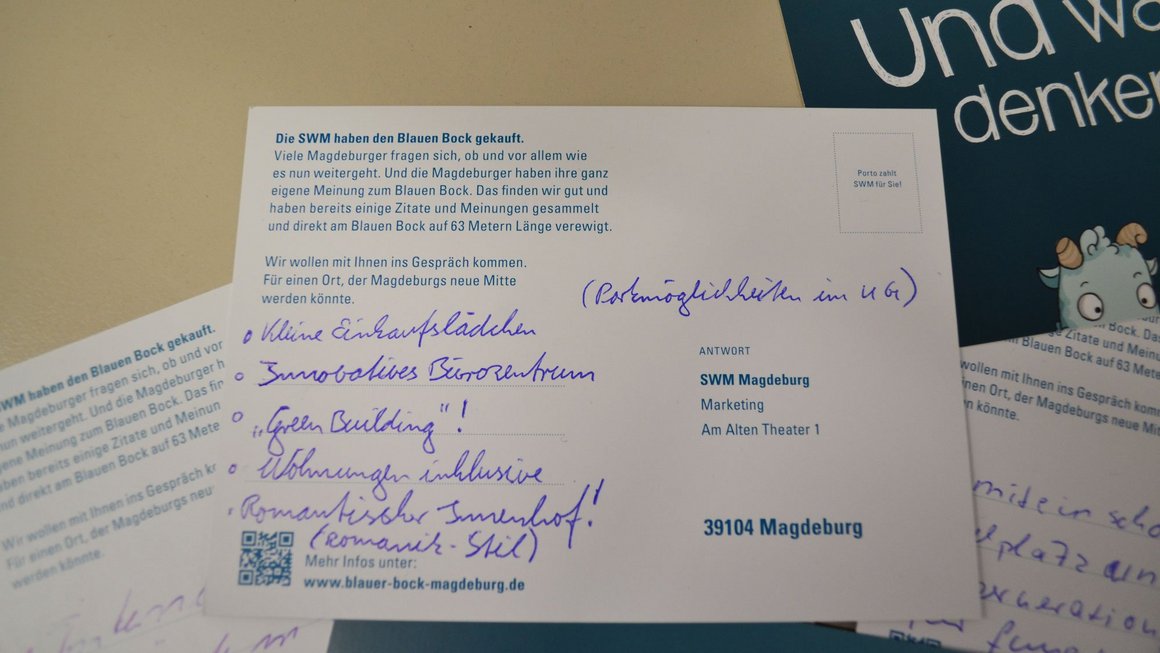 Und
denken
Die SWM haben den Blauen Bock gekauft.
Viele Magdeburger fragen sich, ob und vor allem wie
es nun weitergeht. Und die Magdeburger haben ihre ganz
eigene Meinung zum Blauen Bock. Das finden wir gut und
haben bereits einige Zitate und Meinungen gesammelt
und direkt am Blauen Bock auf 63 Metern Länge verewigt.
Wir wollen mit Ihnen ins Gespräch kommen.
Für einen Ort, der Magdeburgs neue Mitte
werden könnte.
Porto zahlt
SWM für Sie!
(Parkmöglichkeiten im UG)
o Kleine Einkaufslädchen
o Innovatives Bürozentrum
o „Green Building"!
o Wohnungen inklusive
· Romantischer Innenhof!
(Romanik-Stil)
Mehr Infos unter:
www.blauer-bock-magdeburg.de
ANTWORT
SWM Magdeburg
Marketing
Am Alten Theater 1
39104 Magdeburg
SWM haben den Blauen Bock gekauft.
Magdeburger fragen sich, ob und vor
nun weitergeht. Und die Magdeburger
eigene Meinung zum Blauen Bock. Das
haben bereits einige Zitate und Meinun
und direkt am Blauen Bock auf 63 Mete
Wir wollen mit Ihnen ins Gespräch
Für einen Ort, der Magdeburgs neu
werden könnte.
Bock. Da
Zitate und Meinu
Blauen Bock auf 63
wollen mit Ihnen ins Gespräch kom
einen Ort, der Magdeburgs neue Mit
könnte.